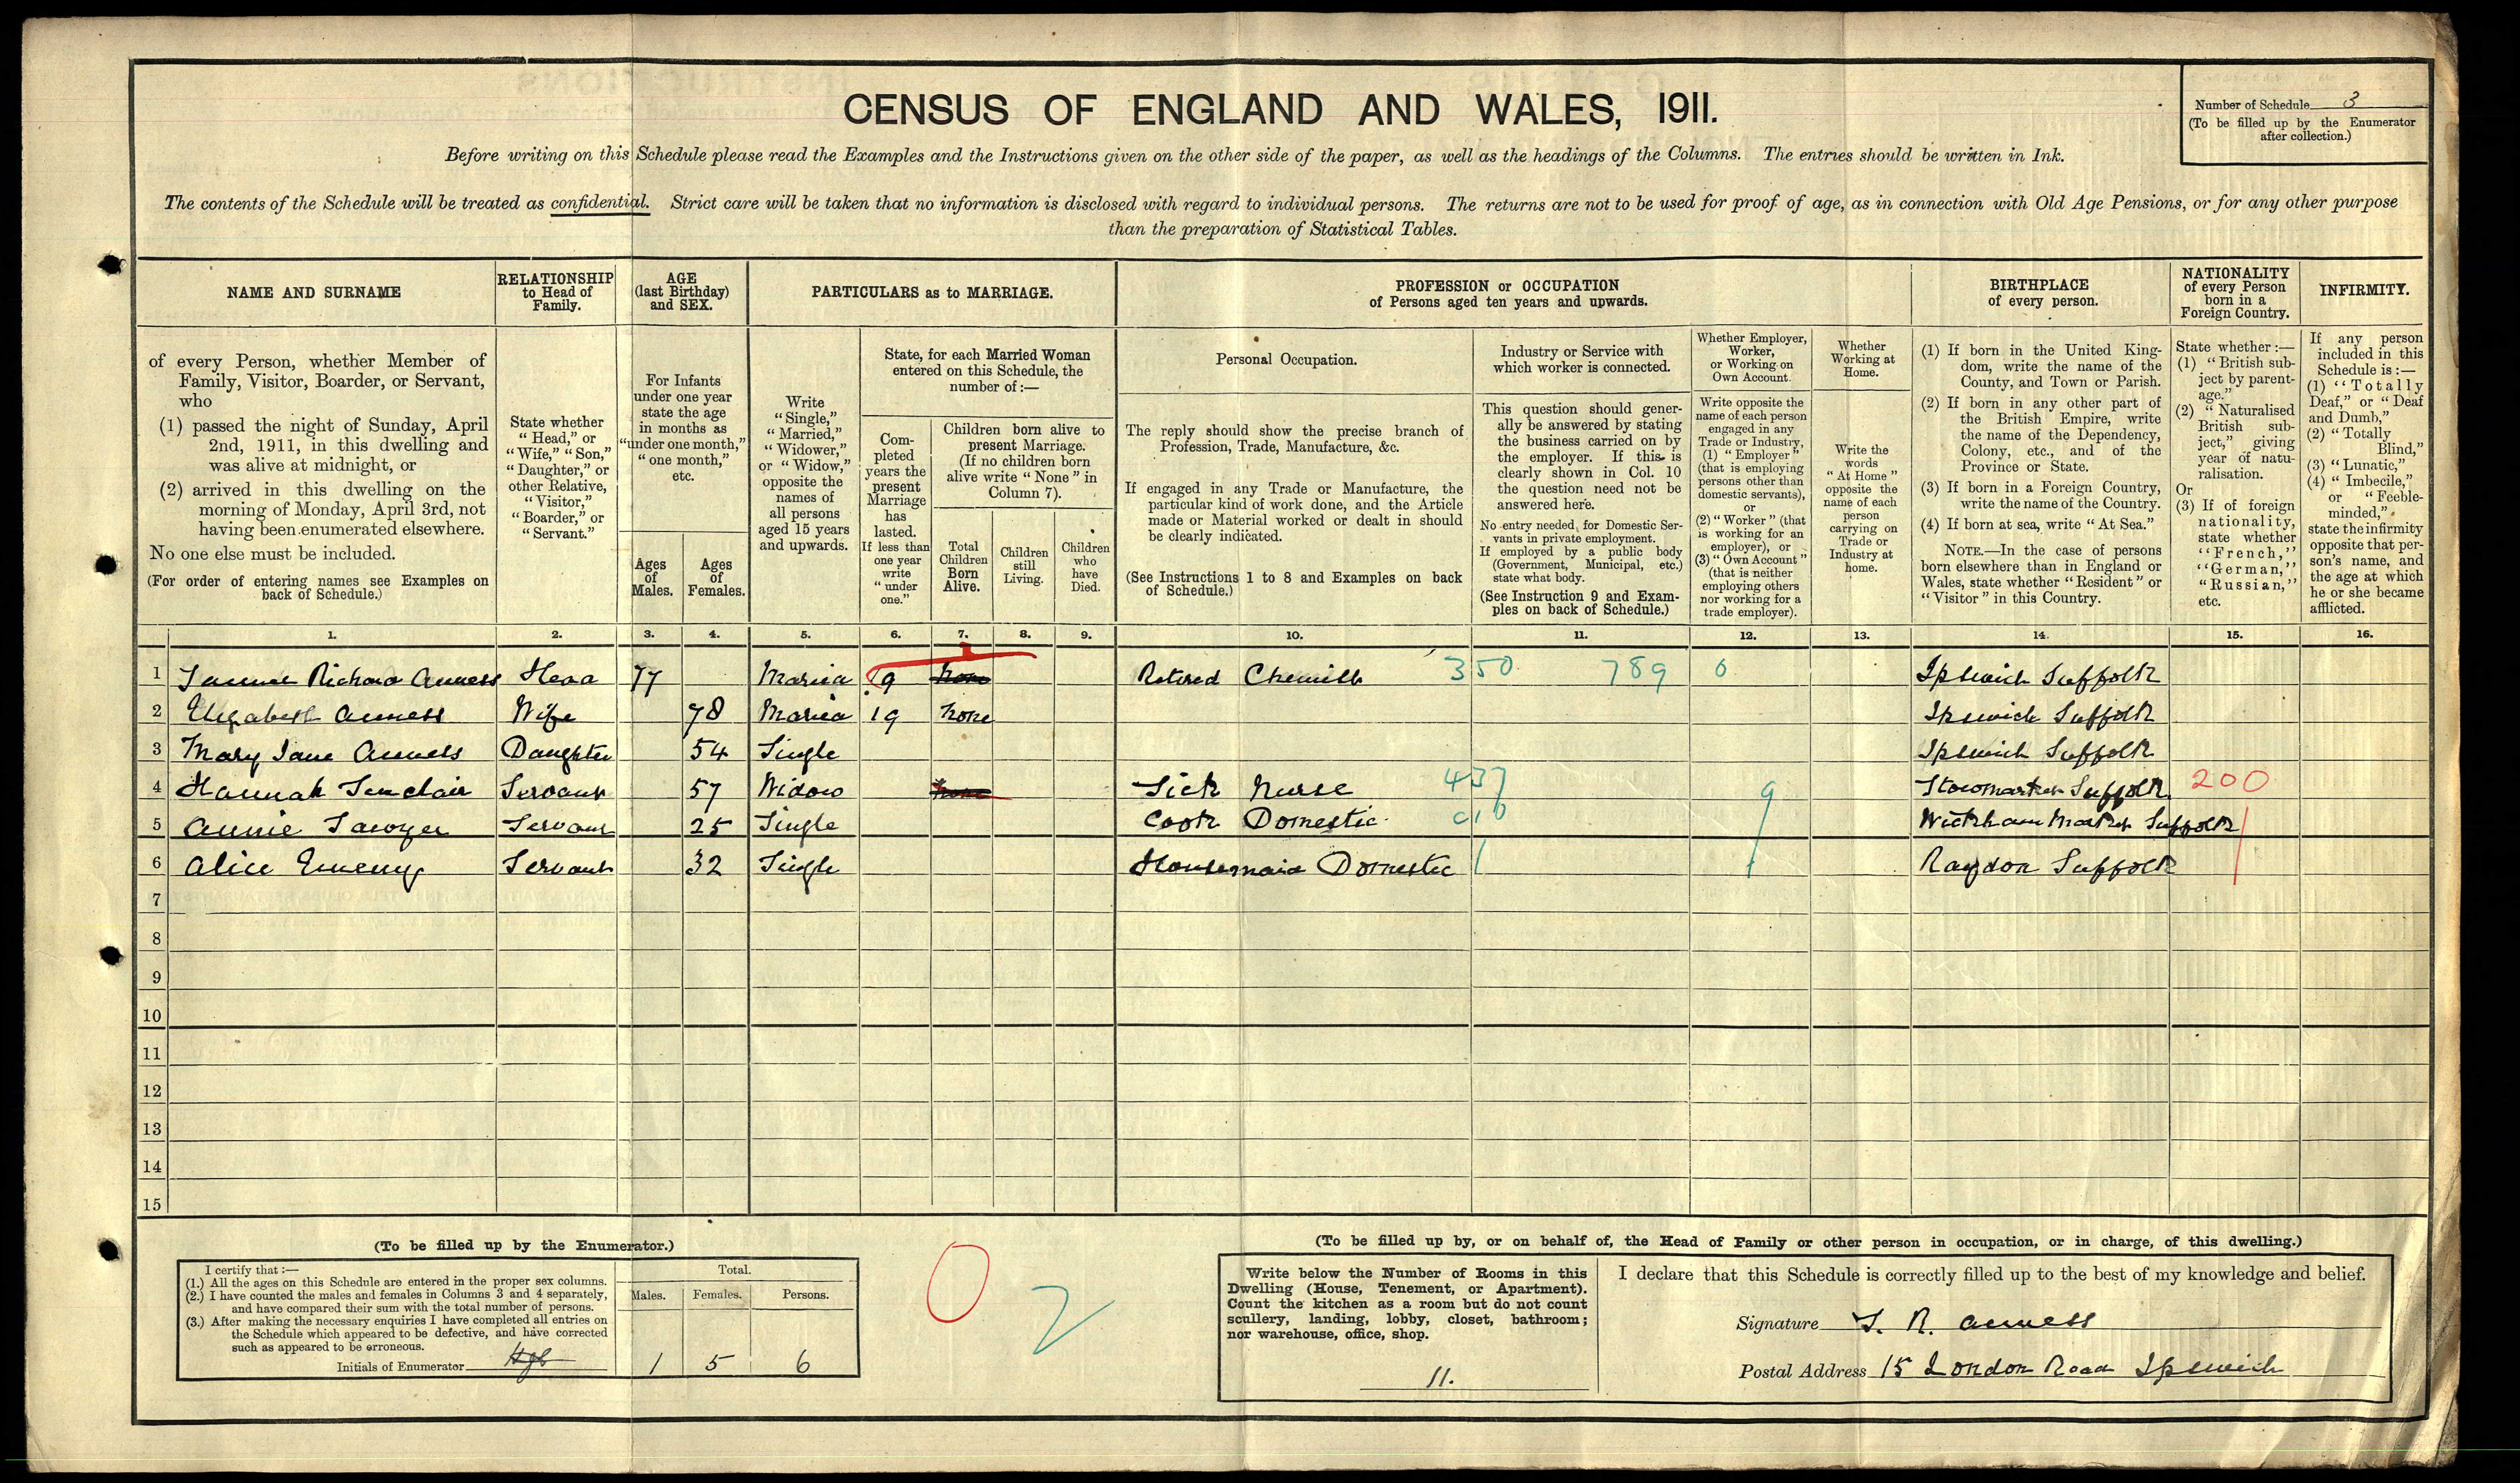 CENSUS OF ENGLAND AND WALES, 1911.
Number of Schedule 3
(To be filled up by the Enumerator
after collection.)
Before writing on this Schedule please read the Examples and the Instructions given on the other side of the paper, as well as the headings of the Columns. The entries should be written in Ink.
The contents of the Schedule will be treated as confidential. Strict care will be taken that no information is disclosed with regard to individual persons. The returns are not to be used for proof of age, as in connection with Old Age Pensions, or for any other purpose
than the preparation of Statistical Tables.
NAME AND SURNAME
of every Person, whether Member of
Family, Visitor, Boarder, or Servant,
who
(1) passed the night of Sunday, April
2nd, 1911, in this dwelling and
was alive at midnight, or
(2) arrived in this dwelling on the
morning of Monday, April 3rd, not
having been enumerated elsewhere.
No one else must be included.
(For order of entering names see Examples on
back of Schedule.)
RELATIONSHIP
to Head of
Family.
State whether
"Head," or
"Wife," "Son,"
"Daughter," or
other Relative,
"Visitor,"
"Boarder," or
"Servant."
AGE
(last Birthday)
and SEX.
For Infants
under one year
state the age
in months as
"under one month,"
"one month,"
etc.
Ages
of
Males.
Ages
of
Females.
PARTICULARS as to MARRIAGE.
Write
"Single,"
"Married,"
"Widower,"
or "Widow,"
opposite the
names of
all persons
aged 15 years
and upwards.
State, for each Married Woman
entered on this Schedule, the
number of:—
Com-
pleted
years the
present
Marriage
has
lasted.
If less than
one year
write
"under
one."
Children born alive to
present Marriage.
(If no children born
alive write "None" in
Column 7).
Total
Children
Born
Alive.
Children
still
Living.
Children
who
have
Died.
PROFESSION or OCCUPATION
of Persons aged ten years and upwards.
Personal Occupation.
The reply should show the precise branch of
Profession, Trade, Manufacture, &c.
If engaged in any Trade or Manufacture, the
particular kind of work done, and the Article
made or Material worked or dealt in should
be clearly indicated.
(See Instructions 1 to 8 and Examples on back
of Schedule.)
Industry or Service with
which worker is connected.
This question should gener-
ally be answered by stating
the business carried on by
the employer. If this is
clearly shown in Col. 10
the question need not be
answered here.
No entry needed for Domestic Ser-
vants in private employment.
If employed by a public body
(Government, Municipal, etc.)
state what body.
(See Instruction 9 and Exam-
ples on back of Schedule.)
Whether Employer,
Worker,
or Working on
Own Account.
Write opposite the
name of each person
engaged in any
Trade or Industry,
(1) "Employer"
(that is employing
persons other than
domestic servants),
or
(2) "Worker" (that
is working for an
employer), or
(3) "Own Account"
(that is neither
employing others
nor working for a
trade employer).
Whether
Working at
Home.
Write the
words
"At Home"
opposite the
name of each
person
carrying on
Trade or
Industry at
home.
BIRTHPLACE
of every person.
(1) If born in the United King-
dom, write the name of the
County, and Town or Parish.
(2) If born in any other part of
the British Empire, write
the name of the Dependency,
Colony, etc., and of the
Province or State.
(3) If born in a Foreign Country,
write the name of the Country.
(4) If born at sea, write "At Sea."
NOTE.—In the case of persons
born elsewhere than in England or
Wales, state whether "Resident" or
"Visitor" in this Country.
NATIONALITY
of every Person
born in a
Foreign Country.
State whether:—
(1) "British sub-
ject by parent-
age."
(2) "Naturalised
British sub-
ject," giving
year of natu-
ralisation.
Or
(3) If of foreign
nationality,
state whether
"French,"
"German,"
"Russian,"
etc.
INFIRMITY.
If any person
included in this
Schedule is:—
(1) "Totally
Deaf," or "Deaf
and Dumb,"
(2) "Totally
Blind,"
(3) "Lunatic,"
(4) "Imbecile,"
or "Feeble-
minded,"
state the infirmity
opposite that per-
son's name, and
the age at which
he or she became
afflicted.
1. 2. 3. 4. 5. 6. 7. 8. 9. 10. 11. 12. 13. 14. 15. 16.
1 Samuel Richard Anness Head 77 Married 19 None Retired Chemist 350 789 0 Ipswich Suffolk
2 Elizabeth Anness Wife 78 Married 19 None Ipswich Suffolk
3 Mary Jane Anness Daughter 54 Single Ipswich Suffolk
4 Hannah Sinclair Servant 57 Widow None Sick Nurse 437 9 Stowmarket Suffolk 200
5 Annie Sawyer Servant 25 Single Cook Domestic Wickham Market Suffolk
6 Alice Emeny Servant 32 Single Housemaid Domestic Raydon Suffolk
7
8
9
10
11
12
13
14
15
(To be filled up by the Enumerator.)
I certify that:—
(1.) All the ages on this Schedule are entered in the proper sex columns.
(2.) I have counted the males and females in Columns 3 and 4 separately,
and have compared their sum with the total number of persons.
(3.) After making the necessary enquiries I have completed all entries on
the Schedule which appeared to be defective, and have corrected
such as appeared to be erroneous.
Initials of Enumerator
Total.
Males. Females. Persons.
1 5 6
0 2
(To be filled up by, or on behalf of, the Head of Family or other person in occupation, or in charge, of this dwelling.)
Write below the Number of Rooms in this
Dwelling (House, Tenement, or Apartment).
Count the kitchen as a room but do not count
scullery, landing, lobby, closet, bathroom;
nor warehouse, office, shop.
11.
I declare that this Schedule is correctly filled up to the best of my knowledge and belief.
Signature S. R. Anness
Postal Address 15 London Road Ipswich